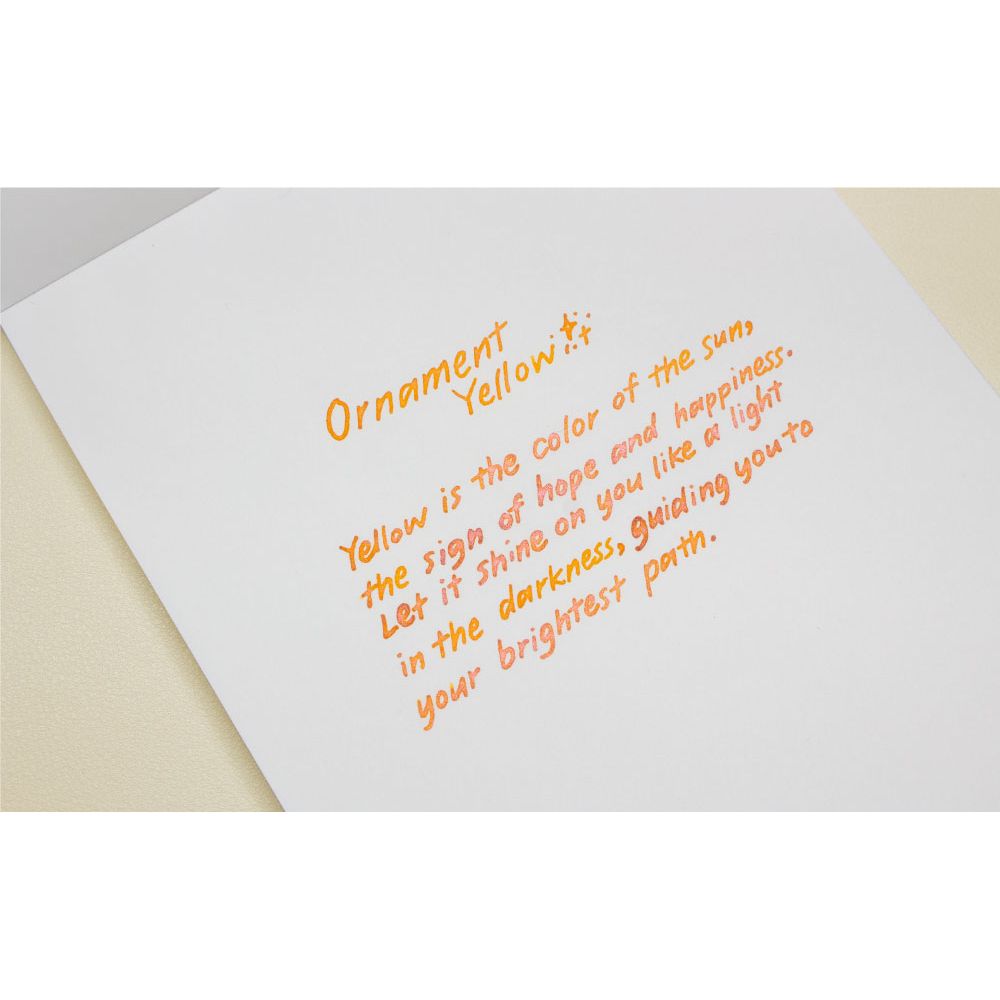 Ornament
Yellow
Yellow is the color of the sun,
the sign of hope and happiness.
Let it shine on you like a light
in the darkness, guiding you to
your brightest path.